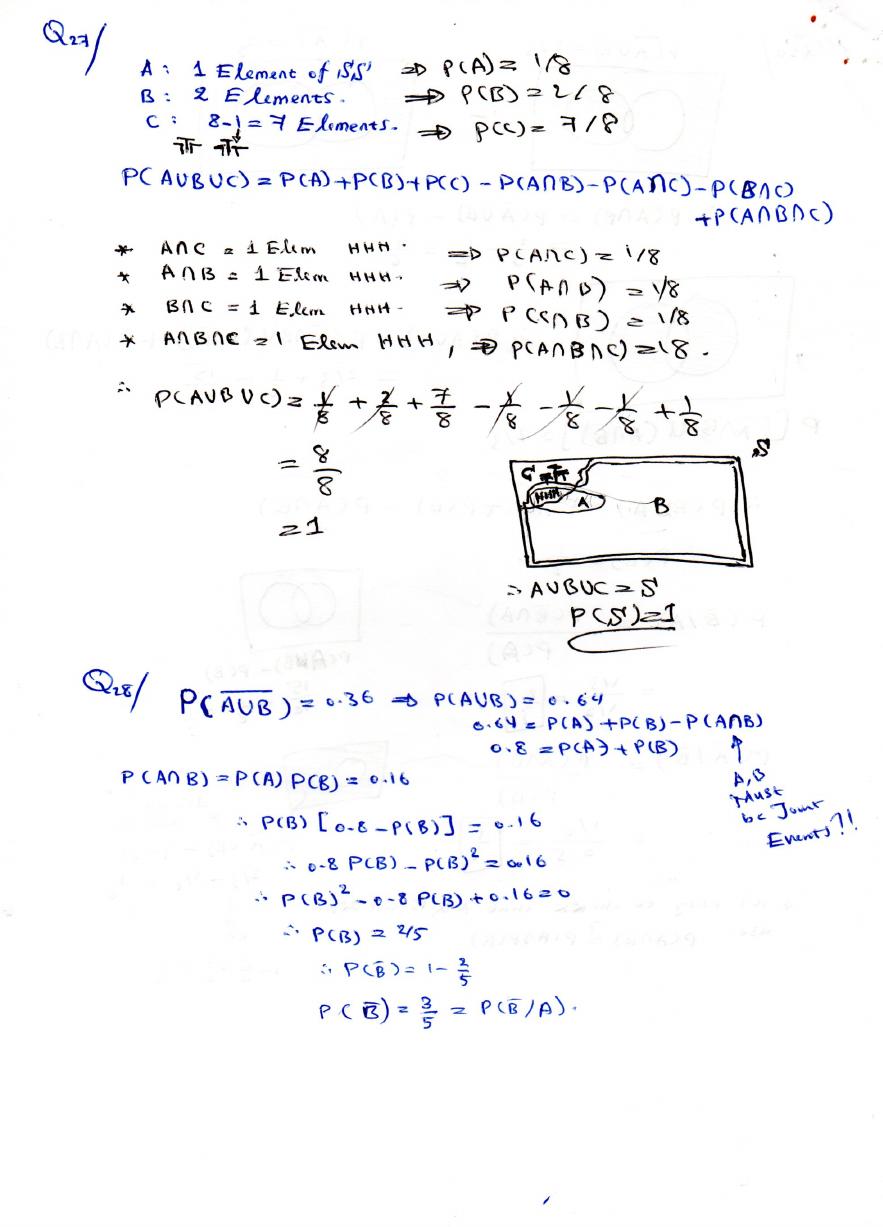 Q27/
A : 1 Element of SS ⇒ P(A) = 1/8
B : 2 Elements. ⇒ P(B) = 2/8
C : 8-1 = 7 Elements. ⇒ P(C) = 7/8
TT TT
P(AUBUC) = P(A)+P(B)+P(C) - P(A∩B) - P(A∩C) - P(B∩C)
+P(A∩B∩C)
* A∩C = 1 Elem HHH. ⇒ P(A∩C) = 1/8
* A∩B = 1 Elem HHH. ⇒ P(A∩B) = 1/8
* B∩C = 1 Elem HHH - ⇒ P(C∩B) = 1/8
* A∩B∩C = 1 Elem HHH, ⇒ P(A∩B∩C) = 18.
∴ P(AUBUC) = 1/8 + 2/8 + 7/8 - 1/8 - 1/8 - 1/8 + 1/8
= 8/8
= 1
S
C TT
HHH A B
∴ AUBUC = S
P(S) = 1
Q28/ P(\overline{AUB}) = 0.36 ⇒ P(AUB) = 0.64
0.64 = P(A) + P(B) - P(A∩B)
0.8 = P(A) + P(B)
A,B
Must
be Joint
Events?!
P(A∩B) = P(A) P(B) = 0.16
∴ P(B) [0.8 - P(B)] = 0.16
∴ 0.8 P(B) - P(B)² = 0.16
∴ P(B)² - 0.8 P(B) + 0.16 = 0
∴ P(B) = 2/5
∴ P(B̄) = 1 - 2/5
P(B̄) = 3/5 = P(B̄/A).